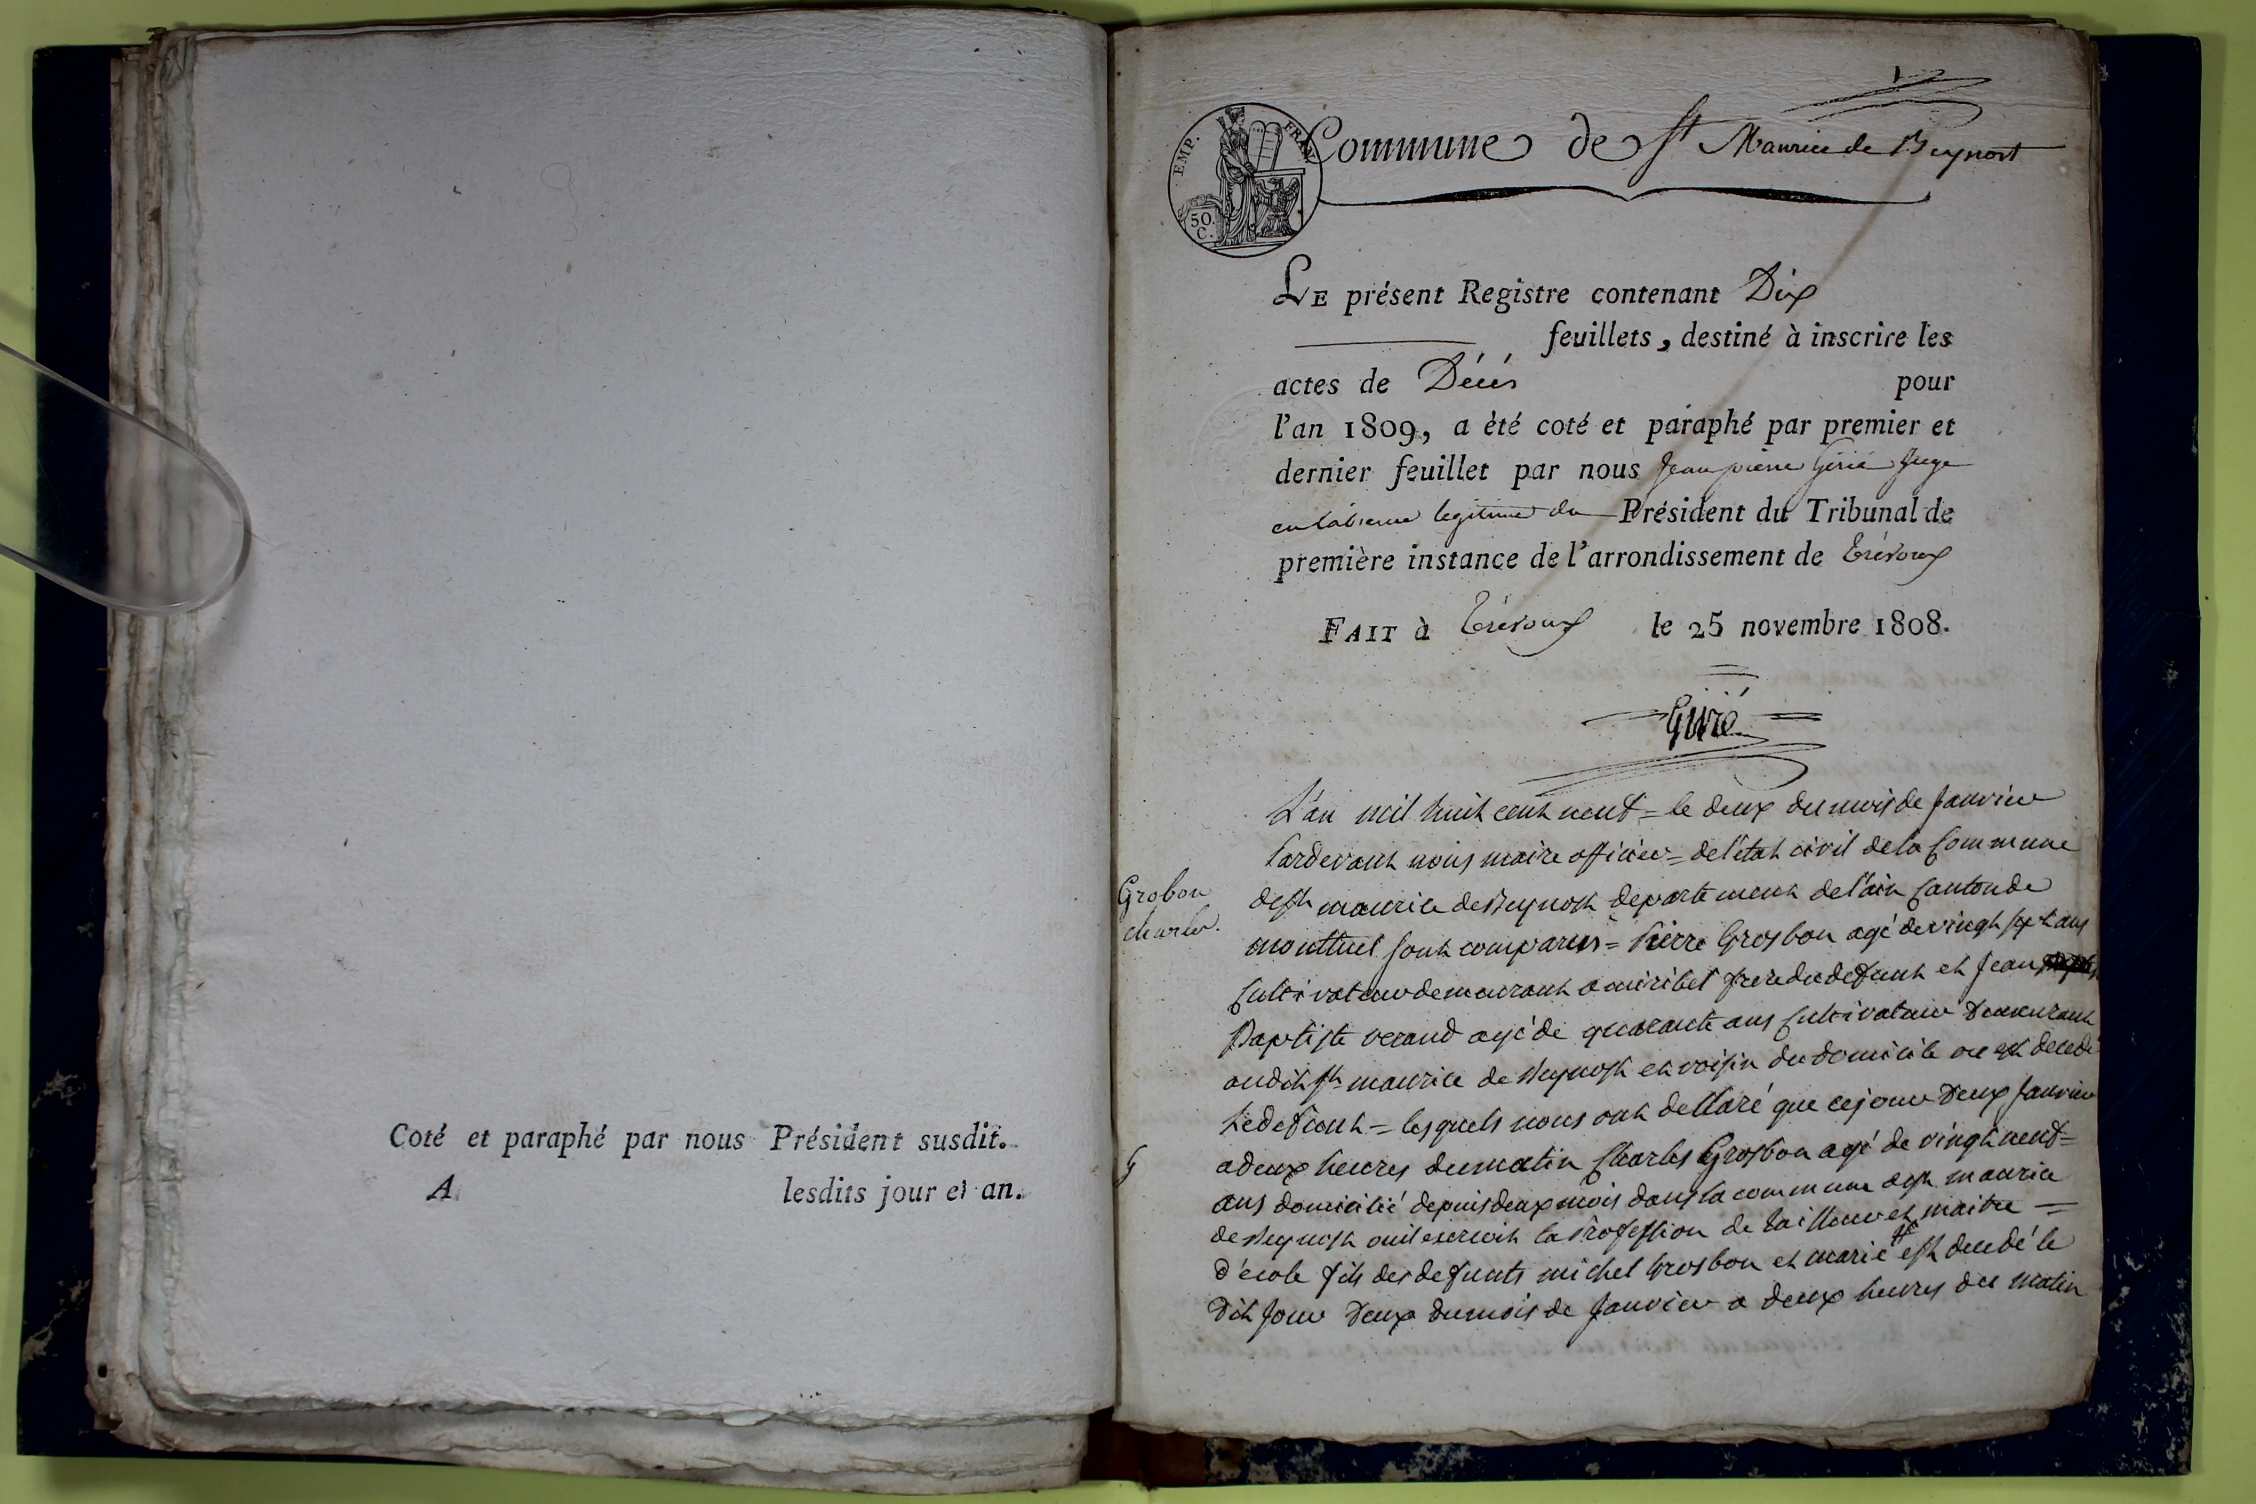 Coté et paraphé par nous Président susdit.
A lesdits jour et an.
EMP. FRAN
50.
C.
Commune de St Maurice de Beynost
LE présent Registre contenant Dix
feuillets, destiné à inscrire les
actes de Décés pour
l'an 1809, a èté coté et paraphé par premier et
dernier feuillet par nous Jean pierre Girié Juge
en l'absence legitime du Président du Tribunal de
première instance de l'arrondissement de Trévoux
FAIT à Trévoux le 25 novembre 1808.
Girié
L'an mil huit cent neuf = le deux du mois de Janvier
Pardevant nous maire officier = de l'état civil de la Commune
de st maurice de Beynost departement de l'ain Canton de
montluel sont comparus = Pierre Grosbon agé de vingt sept ans
Cultivateur demeurant a miribel frere du defunt et Jean
Baptiste verand agé de quarante ans Cultivateur Demeurant
audit st maurice de Beynost et voisin du domicile ou est decedé
Le defunt = lesquels nous ont declaré que cejour Deux Janvier
a deux heures du matin Charles Grosbon agé de vingt neuf =
ans domicilié depuis deux mois dans la commune de st maurice
de Beynost ou il exercoit la Profession de tailleur et maitre =
d'école fils des defunts michel Grosbon et marie # est decedé le
Dit Jour Deux du mois de Janvier a deux heures du matin
Grobon
charles.
G